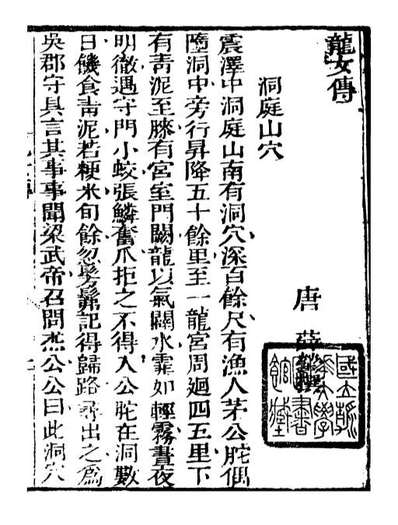 龍女傳
唐 薛
洞庭山穴
震澤中洞庭山南有洞穴深百餘尺有漁人茅公舵偶
墮洞中旁行昇降五十餘里至一龍宮周迴四五里下
有靑泥至膝有宮室門闕龍以氣闢水霏如輕霧晝夜
明徹遇守門小蛟張鱗奮爪拒之不得入公舵在洞數
日饑食靑泥若粳米旬餘忽髣髴記得歸路尋出之爲
吳郡守具言其事事聞梁武帝召問杰公公曰此洞穴